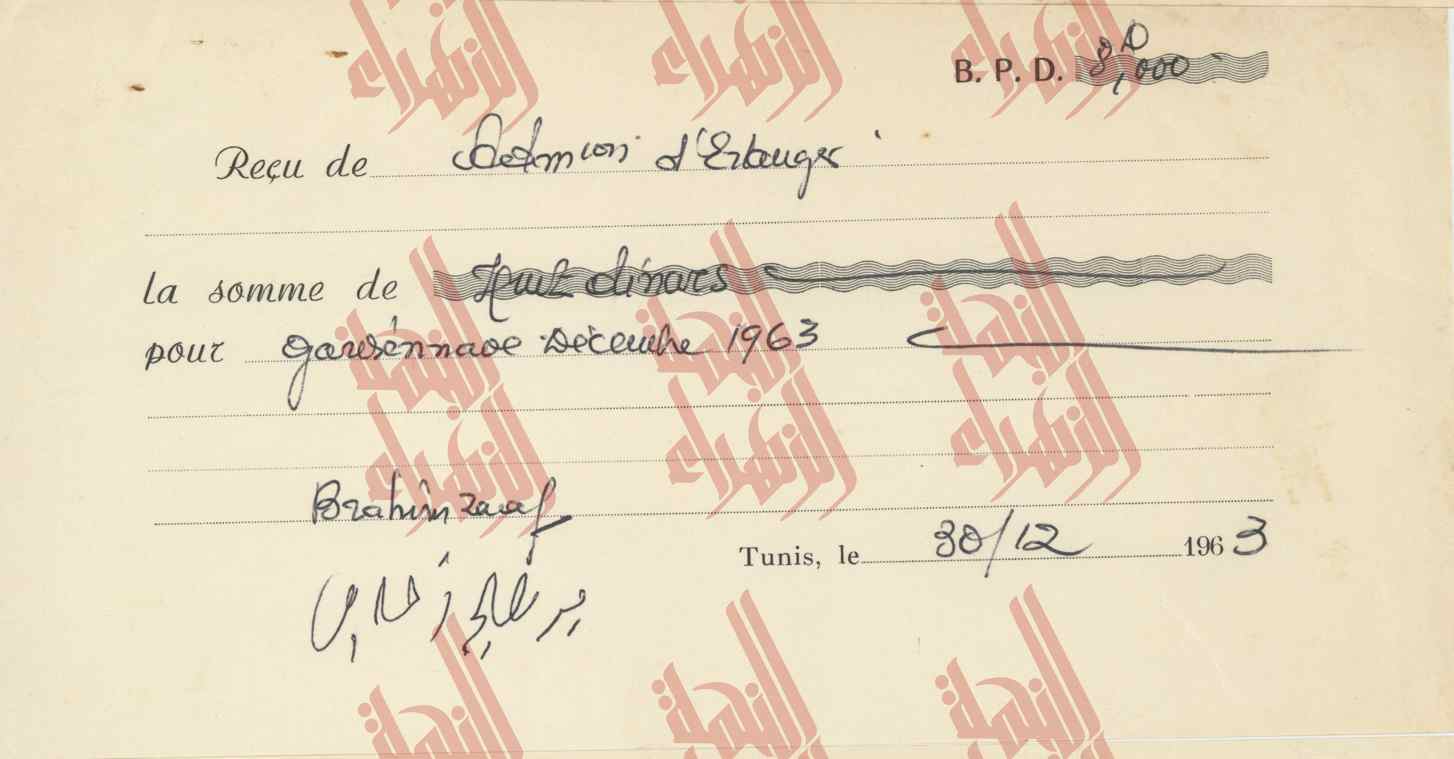 B. P. D. 8,000 D
Reçu de d'Erlanger
la somme de Huit dinars
pour gardiennage Décembre 1963
Brahim Zaaf
Tunis, le 30/12 1963
النجمة الزهراء